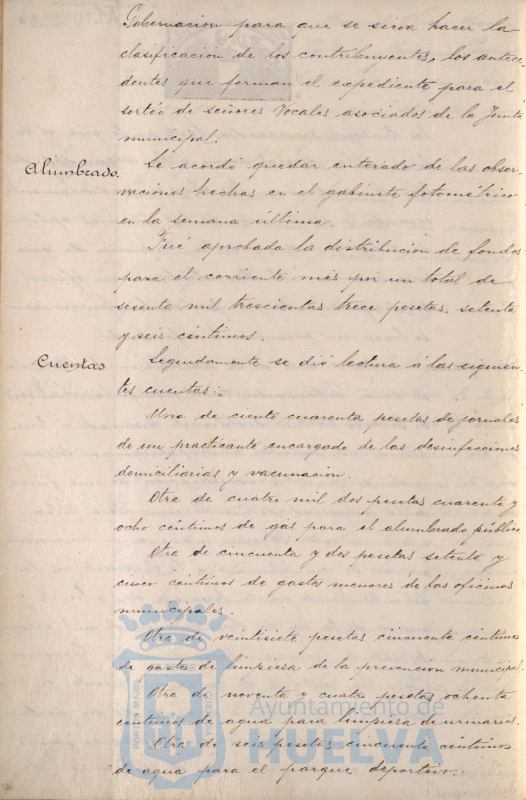 Gobernacion para que se sirva hacer la
clasificación de los contribuyentes, los antece-
dentes que forman el expediente para el
sorteo de señores Vocales asociados de la Junta
municipal.
Alumbrado. Se acordó quedar enterado de las obser-
vaciones hechas en el gabinete fotométrico
en la semana última.
Fué aprobada la distribucion de fondos
para el corriente mes por un total de
sesenta mil trescientas trece pesetas, setenta
y seis céntimos.
Cuentas Seguidamente se dió lectura á las siguien-
tes cuentas:
Una de ciento cuarenta pesetas de jornales
de un practicante encargado de las desinfecciones
domiciliarias y vacunacion.
Otra de cuatro mil dos pesetas cuarenta y
ocho céntimos de gas para el alumbrado público
Otra de cincuenta y dos pesetas setenta y
cinco céntimos de gastos menores de las oficinas
municipales.
Otra de veintisiete pesetas cincuenta céntimos
de gastos de limpiesa de la prevencion municipal.
Otra de noventa y cuatro pesetas ochenta
céntimos de agua para limpiesa de urinarios.
Otra de seis pesetas cincuenta céntimos
de agua para el parque deportivo.
Ayuntamiento de
HUELVA
PORTUS MARIS